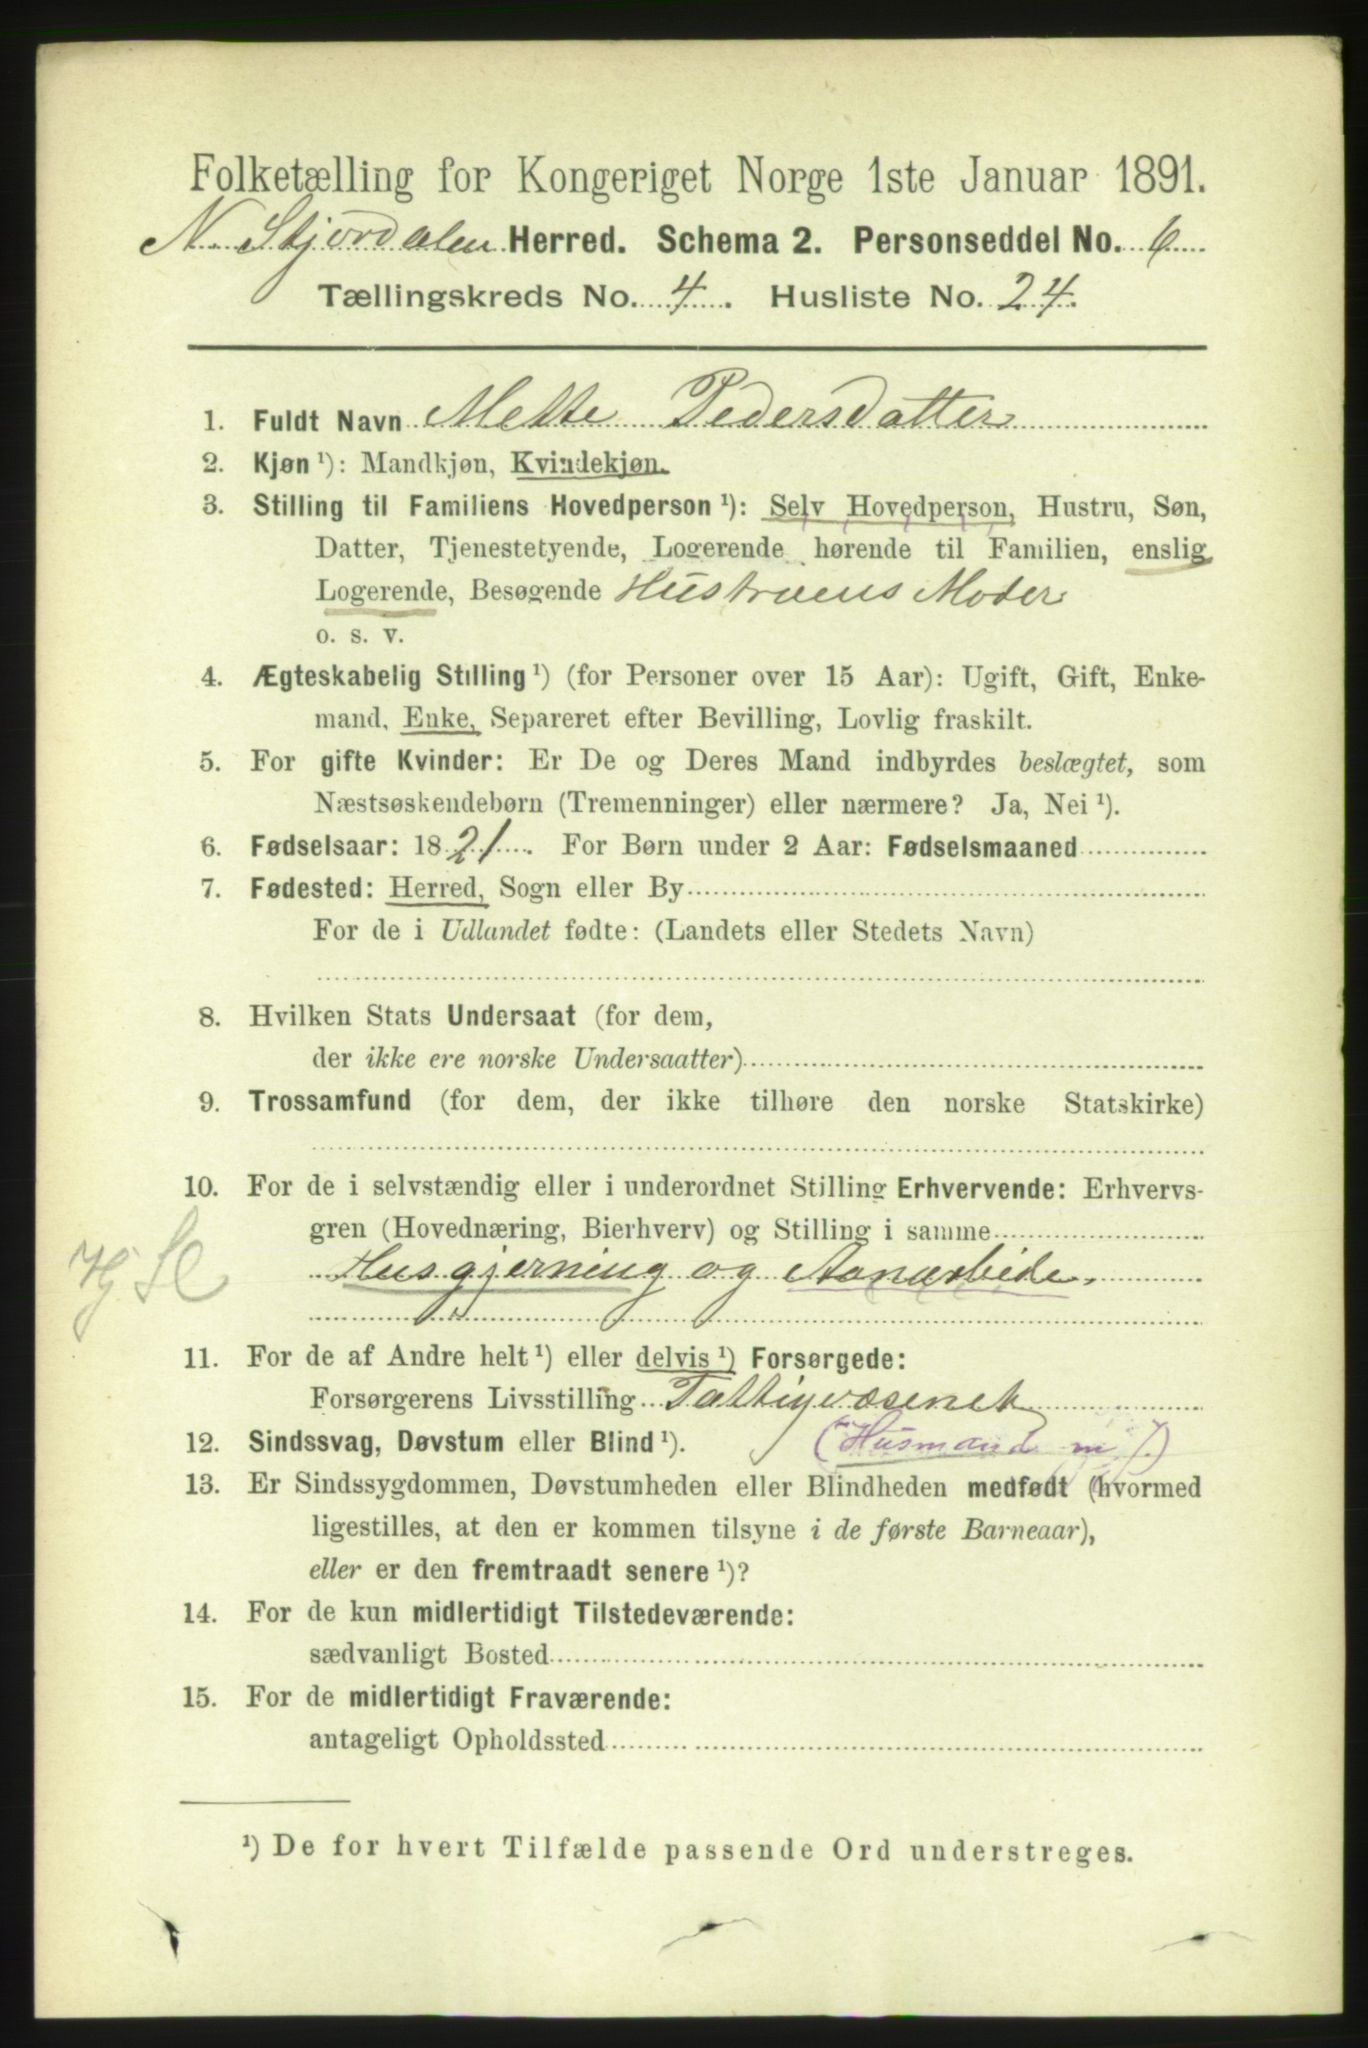 Folketælling for Kongeriget Norge 1ste Januar 1891.
N. Stjørdalen Herred. Schema 2. Personseddel No. 6
Tællingskreds No. 4. Husliste No. 24.
1. Fuldt Navn Mette Pedersdatter
2. Kjøn ¹): Mandkjøn, Kvindekjøn.
3. Stilling til Familiens Hovedperson ¹): Selv Hovedperson, Hustru, Søn,
Datter, Tjenestetyende, Logerende hørende til Familien, enslig
Logerende, Besøgende Hustruens Moder
o. s. v.
4. Ægteskabelig Stilling ¹) (for Personer over 15 Aar): Ugift, Gift, Enke-
mand, Enke, Separeret efter Bevilling, Lovlig fraskilt.
5. For gifte Kvinder: Er De og Deres Mand indbyrdes beslægtet, som
Næstsøskendebørn (Tremenninger) eller nærmere? Ja, Nei ¹).
6. Fødselsaar: 1821. For Børn under 2 Aar: Fødselsmaaned
7. Fødested: Herred, Sogn eller By
For de i Udlandet fødte: (Landets eller Stedets Navn)
8. Hvilken Stats Undersaat (for dem,
der ikke ere norske Undersaatter)
9. Trossamfund (for dem, der ikke tilhøre den norske Statskirke)
10. For de i selvstændig eller i underordnet Stilling Erhvervende: Erhvervs-
gren (Hovednæring, Bierhverv) og Stilling i samme
Husgjerning og Aanarbeide.
11. For de af Andre helt ¹) eller delvis ¹) Forsørgede:
Forsørgerens Livsstilling Fattigvæsenet
12. Sindssvag, Døvstum eller Blind ¹). (Husmand m J.)
13. Er Sindssygdommen, Døvstumheden eller Blindheden medfødt (hvormed
ligestilles, at den er kommen tilsyne i de første Barneaar),
eller er den fremtraadt senere ¹)?
14. For de kun midlertidigt Tilstedeværende:
sædvanligt Bosted
15. For de midlertidigt Fraværende:
antageligt Opholdssted
¹) De for hvert Tilfælde passende Ord understreges.